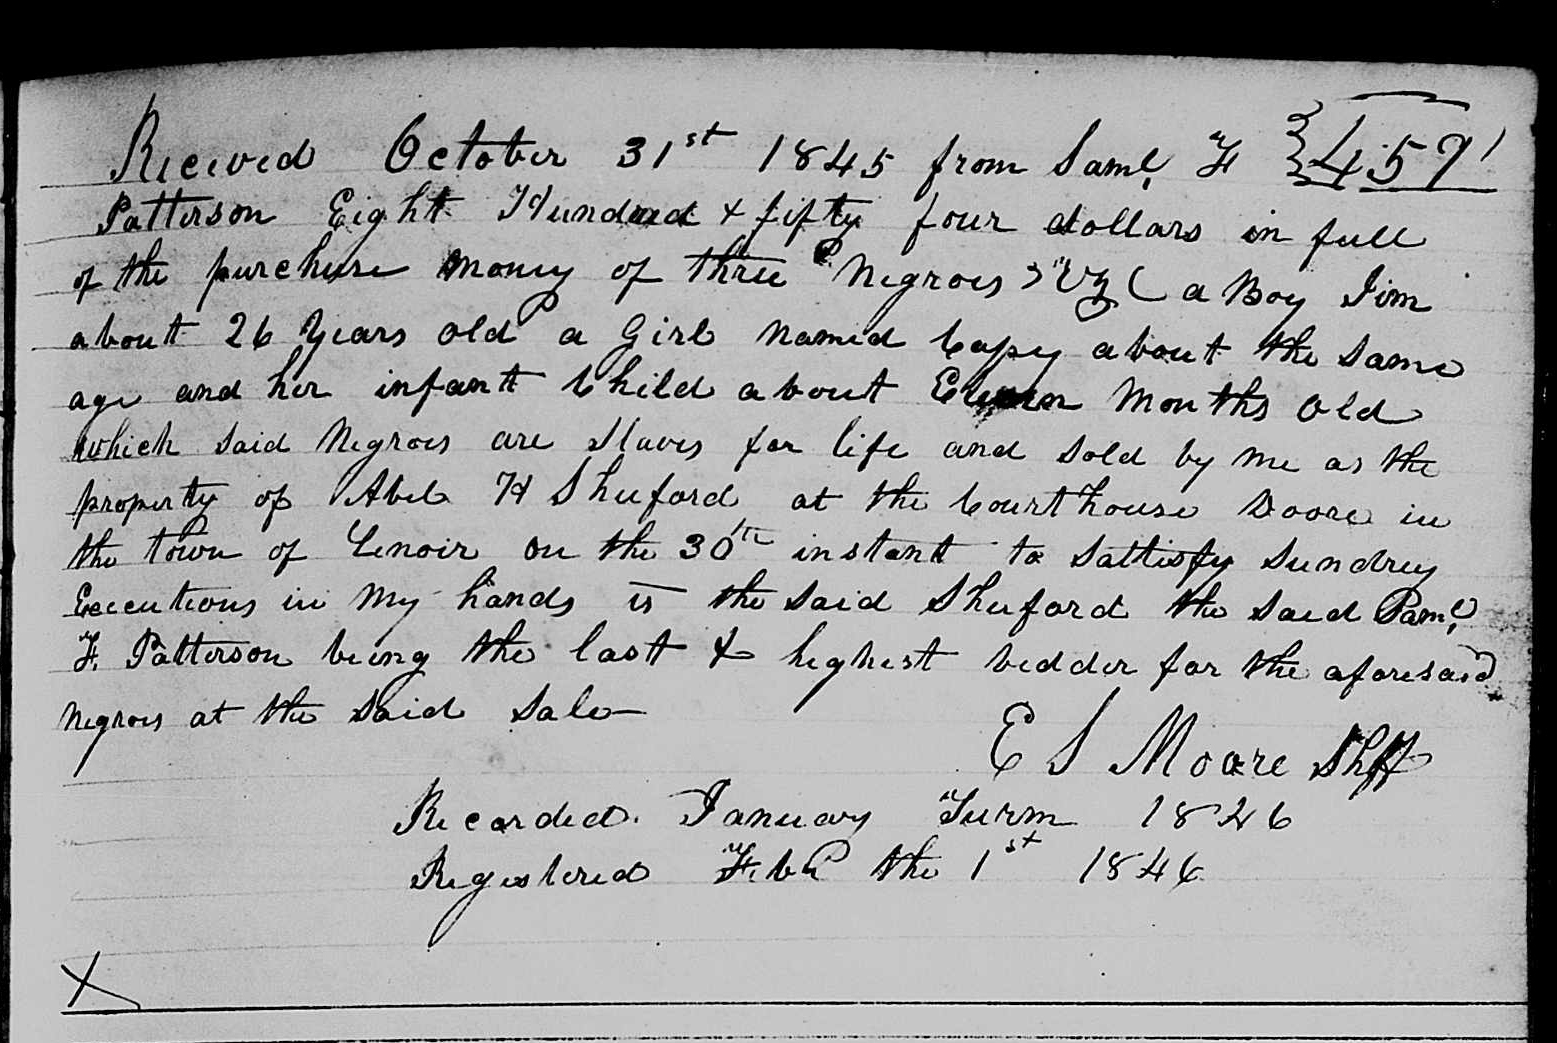 Received October 31st 1845 from Saml. F {459
Patterson Eight Hundred & fifty four dollars in full
of the purchase money of three Negroes viz (a Boy Jim
about 26 Years old a Girl named Capy about the same
age and her infant Child about Months old
which said Negroes are Slaves for life and sold by me as the
property of Abel H Shuford at the Courthouse Doore in
the town of Lenoir on the 30th instant to Sattisfy Sundrey
Executions in my hands vs the said Shuford the said Saml.
F. Patterson being the last & highest bidder for the aforesaid
Negroes at the said Sale
E S Moore Shff
Recorded January Turm 1846
Registered Feb the 1st 1846
X